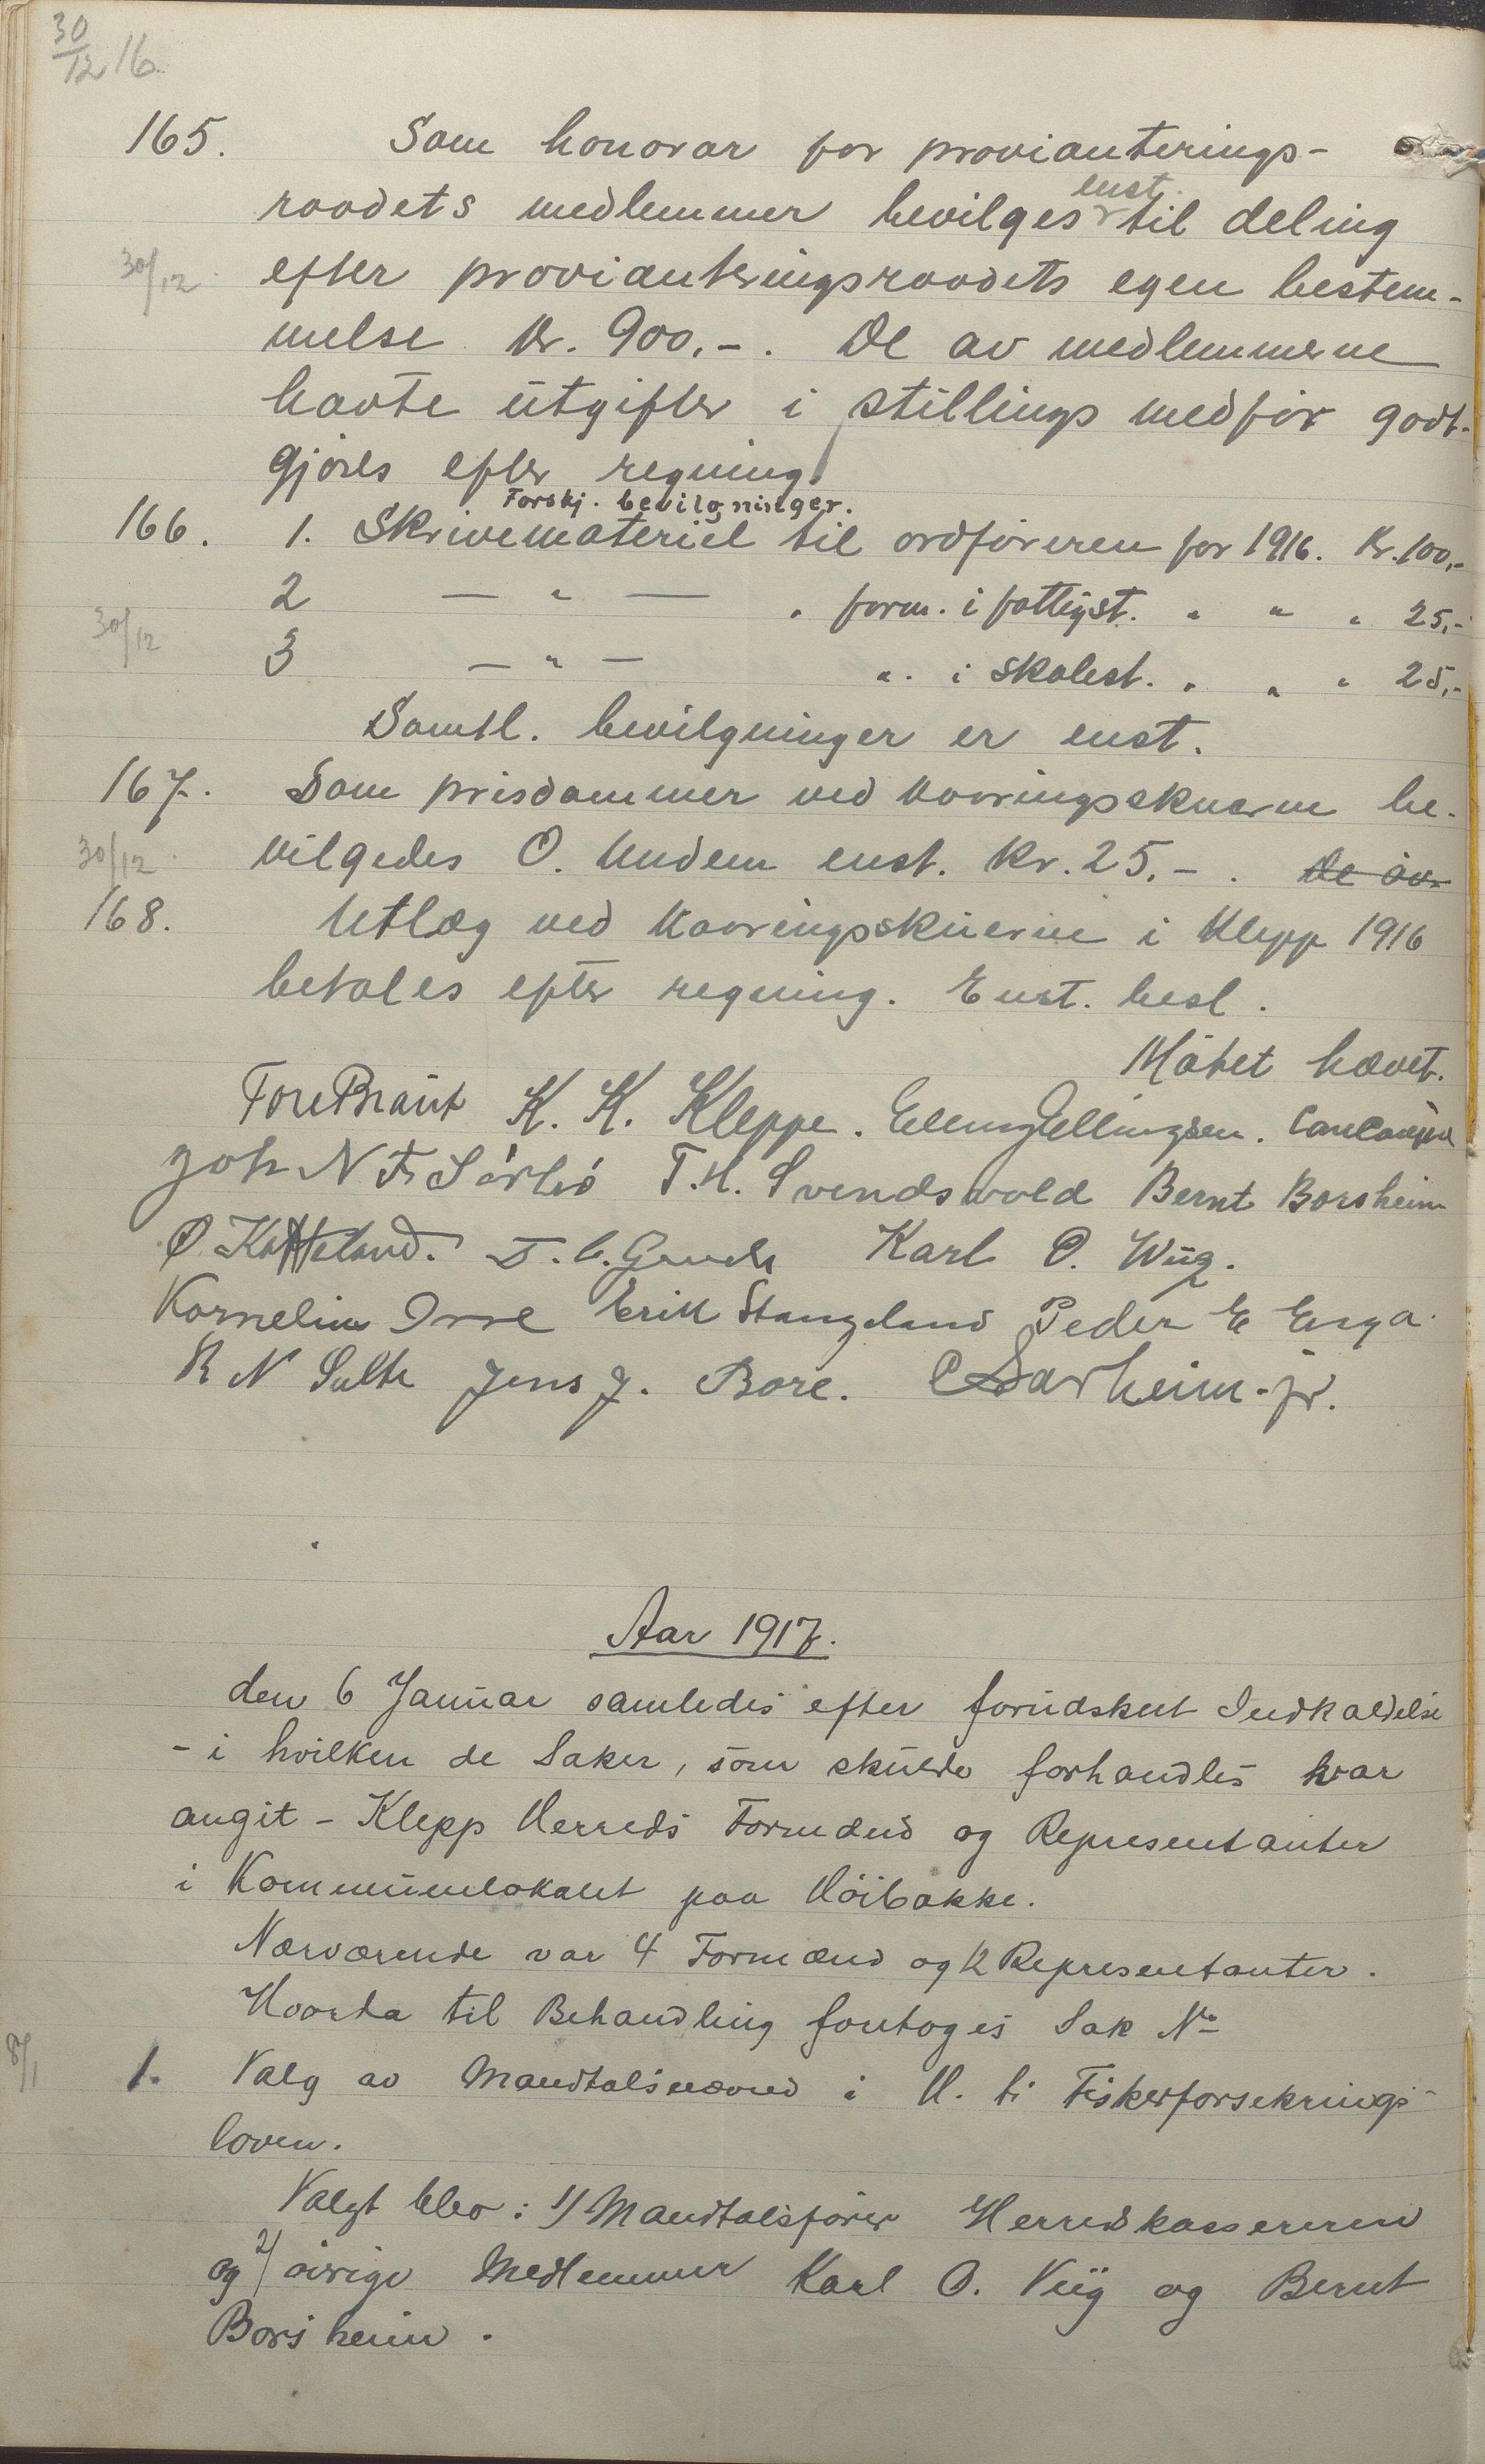 30/12 16.
165. Som honorar for provianterings-
raadets medlemmer bevilges enst. til deling
30/12 efter provianteringsraadets egen bestem-
melse kr. 900,-. De av medlemmerne
havte utgifter i stillings medför godt-
gjöres efter regning.
Forskj. bevilgninger.
166. 1. Skrivemateriel til ordföreren for 1916. Kr. 100,-
2 — " — " form. i fattigst. " " " 25,-
30/12
3 — " — " . i skolest. " " " 25,-
Samtl. bevilgninger er enst.
167. Som prisdommer ved kaaringsskuerne be-
30/12 vilgedes O. Undem enst. kr. 25,-. De av
168. Utlæg ved kaaringsskuerne i Klepp 1916
betales efter regning. Enst. besl.
Mötet hævet.
Tore Braut K. K. Kleppe. Elling Ellingsen.
Joh N Fr T. H. Svendsvold Bernt Borsheim
O. Katteland. Karl O. Wiig.
Kornelius Orre Erik Stangeland Peder E Erga
R N Salte Jens J. Bore. jr.
Aar 1917.
den 6 Januar samledes efter forudskeet Indkaldelse
- i hvilken de Saker, som skulde forhandles var
angit - Klepp Herreds Formænd og Representanter
i Kommunelokalet paa Höibakke.
Nærværende var 4 Formænd og 12 Representanter.
Hvorda til Behandling foretoges Sak No
8/1
1. Valg av Mandtalsnævnd i H. ti Fiskerforsekrings-
loven.
Valgt blev: 1/ Mandtalsförer Herredskassereren
og 2/ övrige Medlemmer Karl O. Viig og Bernt
Borsheim.